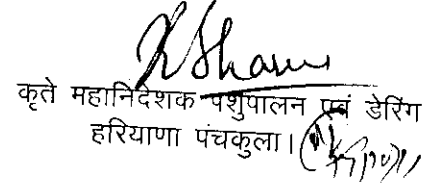 कृते महानिदेशक पशुपालन एवं डेरिंग
हरियाणा पंचकुला।